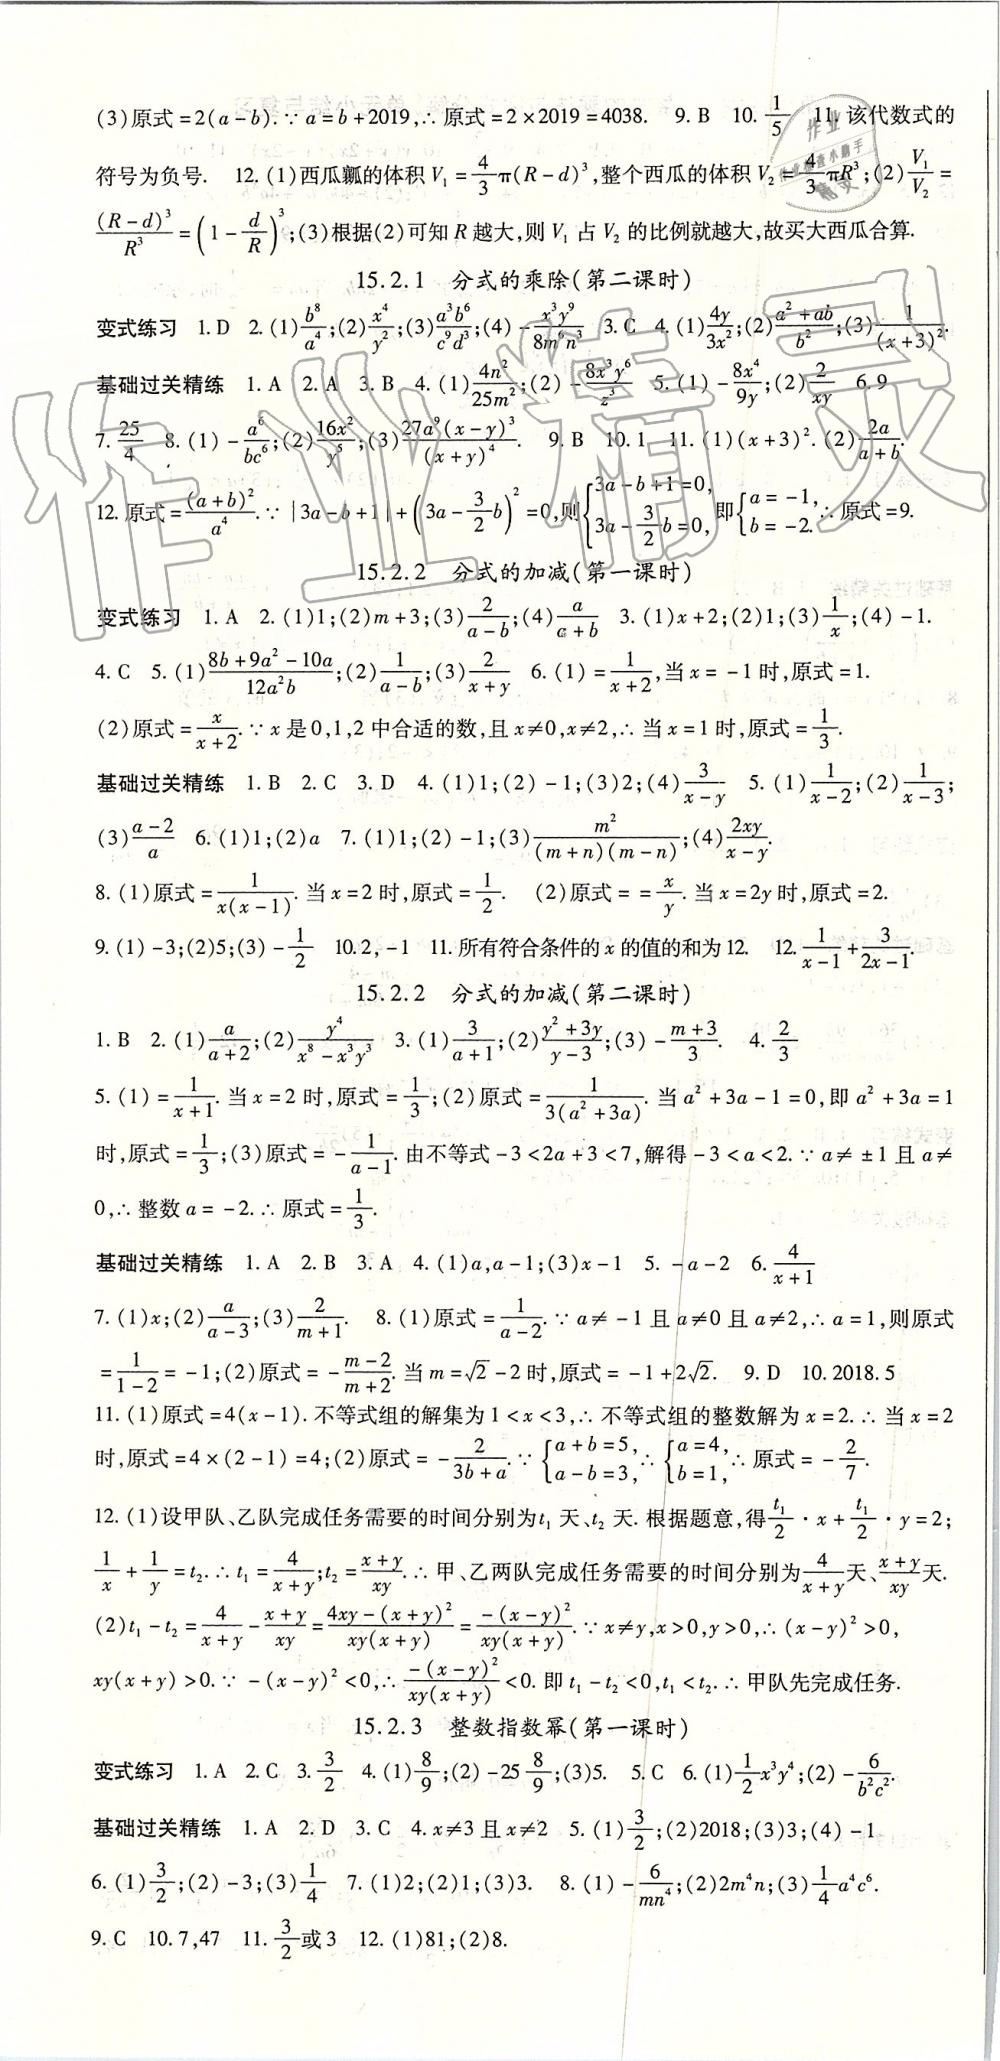 (3)原式=2(a-b).∵a=b+2019,∴原式=2×2019=4038. 9.B 10.$\frac{1}{5}$ 11.该代数式的
符号为负号. 12.(1)西瓜瓤的体积$V_1=\frac{4}{3}π(R-d)^3$,整个西瓜的体积$V_2=\frac{4}{3}πR^3$;(2)$\frac{V_1}{V_2}$=
$\frac{(R-d)^3}{R^3}=\left(1-\frac{d}{R}\right)^3$;(3)根据(2)可知R越大,则$V_1$占$V_2$的比例就越大,故买大西瓜合算.
15.2.1 分式的乘除(第二课时)
变式练习 1.D 2.(1)$\frac{b^8}{a^4}$;(2)$\frac{x^4}{y^2}$;(3)$\frac{a^3b^6}{c^9d^3}$;(4)$-\frac{x^3y^9}{8m^6n^3}$ 3.C 4.(1)$\frac{4y}{3x^2}$;(2)$\frac{a^2+ab}{b^2}$;(3)$\frac{1}{(x+3)^2}$.
基础过关精练 1.A 2.A 3.B 4.(1)$\frac{4n^2}{25m^2}$;(2)$-\frac{8x^3y^6}{z^3}$ 5.(1)$-\frac{8x^4}{9y}$;(2)$\frac{2}{xy}$ 6.9
7.$\frac{25}{4}$ 8.(1)$-\frac{a^6}{bc^6}$;(2)$\frac{16x^2}{y^5}$;(3)$\frac{27a^9(x-y)^3}{(x+y)^4}$. 9.B 10.1 11.(1)$(x+3)^2$.(2)$\frac{2a}{a+b}$.
12.原式=$\frac{(a+b)^2}{a^4}$.∵$|3a-b+1|+\left(3a-\frac{3}{2}b\right)^2=0$,则$\begin{cases}3a-b+1=0,\\3a-\frac{3}{2}b=0,\end{cases}$即$\begin{cases}a=-1,\\b=-2.\end{cases}$∴原式=9.
15.2.2 分式的加减(第一课时)
变式练习 1.A 2.(1)1;(2)m+3;(3)$\frac{2}{a-b}$;(4)$\frac{a}{a+b}$ 3.(1)x+2;(2)1;(3)$\frac{1}{x}$;(4)-1.
4.C 5.(1)$\frac{8b+9a^2-10a}{12a^2b}$;(2)$\frac{1}{a-b}$;(3)$\frac{2}{x+y}$ 6.(1)=$\frac{1}{x+2}$,当x=-1时,原式=1.
(2)原式=$\frac{x}{x+2}$.∵x是0,1,2中合适的数,且x≠0,x≠2,∴当x=1时,原式=$\frac{1}{3}$.
基础过关精练 1.B 2.C 3.D 4.(1)1;(2)-1;(3)2;(4)$\frac{3}{x-y}$ 5.(1)$\frac{1}{x-2}$;(2)$\frac{1}{x-3}$;
(3)$\frac{a-2}{a}$ 6.(1)1;(2)a 7.(1)1;(2)-1;(3)$\frac{m^2}{(m+n)(m-n)}$;(4)$\frac{2xy}{x-y}$.
8.(1)原式=$\frac{1}{x(x-1)}$.当x=2时,原式=$\frac{1}{2}$. (2)原式==$\frac{x}{y}$.当x=2y时,原式=2.
9.(1)-3;(2)5;(3)$-\frac{1}{2}$ 10.2,-1 11.所有符合条件的x的值的和为12. 12.$\frac{1}{x-1}+\frac{3}{2x-1}$.
15.2.2 分式的加减(第二课时)
1.B 2.(1)$\frac{a}{a+2}$;(2)$\frac{y^4}{x^8-x^3y^3}$ 3.(1)$\frac{3}{a+1}$;(2)$\frac{y^2+3y}{y-3}$;(3)$-\frac{m+3}{3}$. 4.$\frac{2}{3}$
5.(1)=$\frac{1}{x+1}$.当x=2时,原式=$\frac{1}{3}$;(2)原式=$\frac{1}{3(a^2+3a)}$.当$a^2+3a-1=0$,即$a^2+3a=1$
时,原式=$\frac{1}{3}$;(3)原式=$-\frac{1}{a-1}$.由不等式-3<2a+3<7,解得-3<a<2.∵a≠±1且a≠
0,∴整数a=-2.∴原式=$\frac{1}{3}$.
基础过关精练 1.A 2.B 3.A 4.(1)a,a-1;(3)x-1 5.-a-2 6.$\frac{4}{x+1}$
7.(1)x;(2)$\frac{a}{a-3}$;(3)$\frac{2}{m+1}$. 8.(1)原式=$\frac{1}{a-2}$.∵a≠-1且a≠0且a≠2,∴a=1,则原式
=$\frac{1}{1-2}$=-1;(2)原式=$-\frac{m-2}{m+2}$.当m=$\sqrt{2}$-2时,原式=-1+2$\sqrt{2}$. 9.D 10.2018.5
11.(1)原式=4(x-1).不等式组的解集为1<x<3,∴不等式组的整数解为x=2.∴当x=2
时,原式=4×(2-1)=4;(2)原式=$-\frac{2}{3b+a}$.∵$\begin{cases}a+b=5,\\a-b=3,\end{cases}$∴$\begin{cases}a=4,\\b=1,\end{cases}$∴原式=$-\frac{2}{7}$.
12.(1)设甲队、乙队完成任务需要的时间分别为$t_1$天、$t_2$天.根据题意,得$\frac{t_1}{2}·x+\frac{t_1}{2}·y=2$;
$\frac{1}{x}+\frac{1}{y}=t_2$.∴$t_1=\frac{4}{x+y}$;$t_2=\frac{x+y}{xy}$.∴甲、乙两队完成任务需要的时间分别为$\frac{4}{x+y}$天、$\frac{x+y}{xy}$天.
(2)$t_1-t_2=\frac{4}{x+y}-\frac{x+y}{xy}=\frac{4xy-(x+y)^2}{xy(x+y)}=\frac{-(x-y)^2}{xy(x+y)}$.∵x≠y,x>0,y>0,∴$(x-y)^2>0$,
xy(x+y)>0.∵$-(x-y)^2<0$,∴$\frac{-(x-y)^2}{xy(x+y)}<0$.即$t_1-t_2<0$,$t_1<t_2$.∴甲队先完成任务.
15.2.3 整数指数幂(第一课时)
变式练习 1.A 2.C 3.$\frac{3}{2}$ 4.(1)$\frac{8}{9}$;(2)-25$\frac{8}{9}$;(3)5. 5.C 6.(1)$\frac{1}{2}x^3y^4$;(2)$-\frac{6}{b^2c^2}$.
基础过关精练 1.A 2.D 3.C 4.x≠3且x≠2 5.(1)$\frac{3}{2}$;(2)2018;(3)3;(4)-1
6.(1)$\frac{3}{2}$;(2)-3;(3)$\frac{1}{4}$ 7.(1)2;(2)1;(3)3. 8.(1)$-\frac{6}{mn^4}$;(2)$2m^4n$;(3)$\frac{1}{4}a^4c^6$.
9.C 10.7,47 11.$\frac{3}{2}$或3 12.(1)81;(2)8.
作业精灵